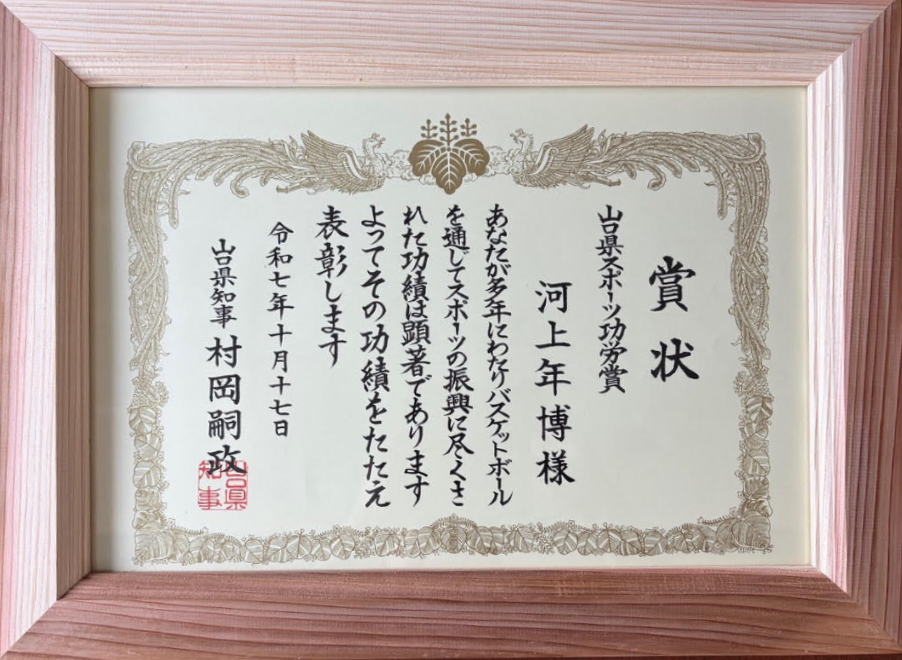 賞状
山口県スポーツ功労賞
河上年博様
あなたが多年にわたりバスケットボール
を通じてスポーツの振興に尽くさ
れた功績は顕著であります
よってその功績をたたえ
表彰します
令和七年十月十七日
山口県知事 村岡嗣政
山口県
知事